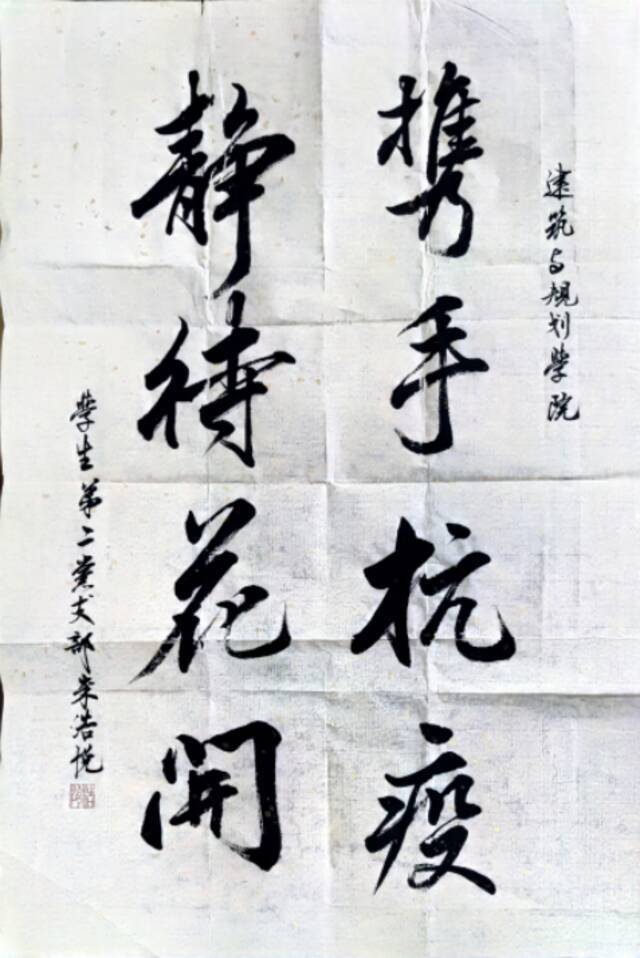 建筑与规划学院
携手抗疫
静待花開
学生第二党支部朱浩悦